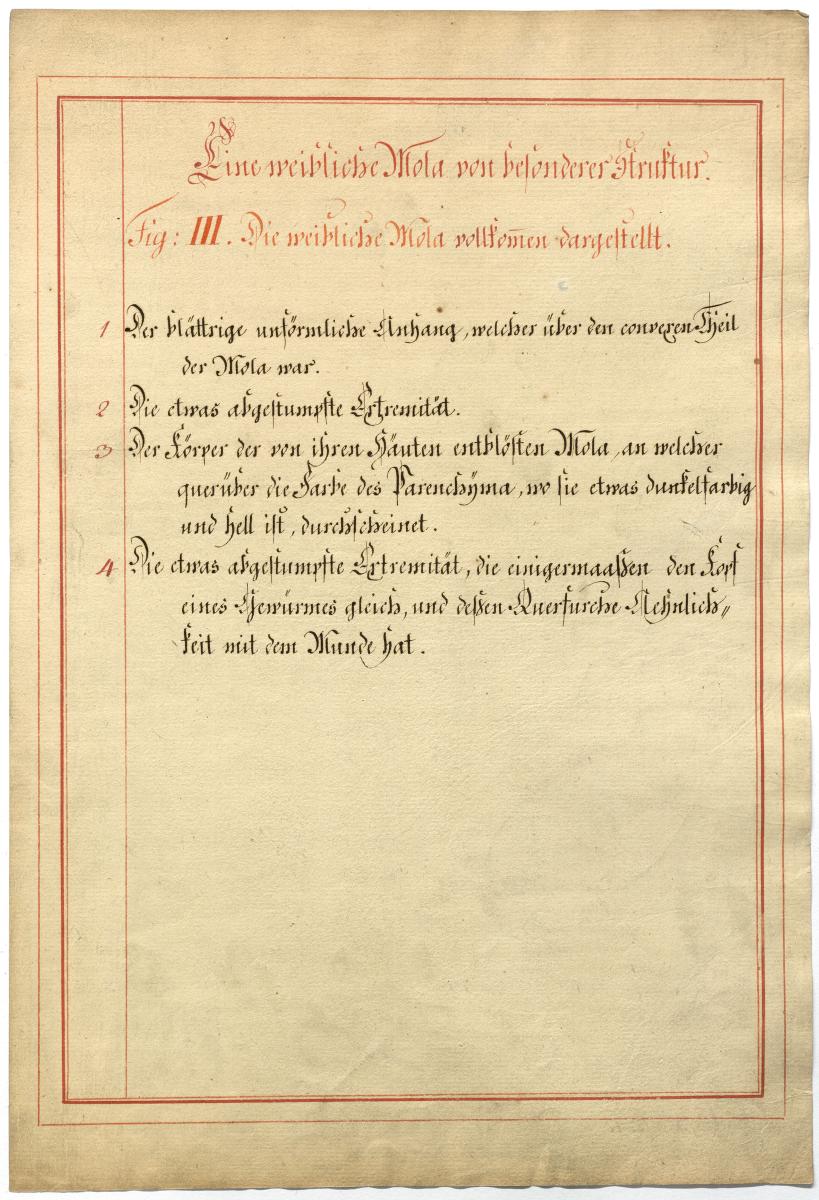 Eine weibliche Mola von besonderer Struktur.
Fig: III. Die weibliche Mola vollkom̅en dargestellt.
1 Der blättrige unförmliche Anhang, welcher über den convexen Theil
der Mola war.
2 Die etwas abgestumpfte Extremität.
3 Der Körper der von ihren Häuten entblösten Mola, an welcher
querüber die Farbe des Parenchÿma, wo sie etwas dunkelfarbig
und hell ist, durchscheinet.
4 Die etwas abgestumpfte Extremität, die einigermaaßen den Kopf
eines Gewürmes gleich, und deßen Querfurche Aehnlich〃
keit mit dem Munde hat.